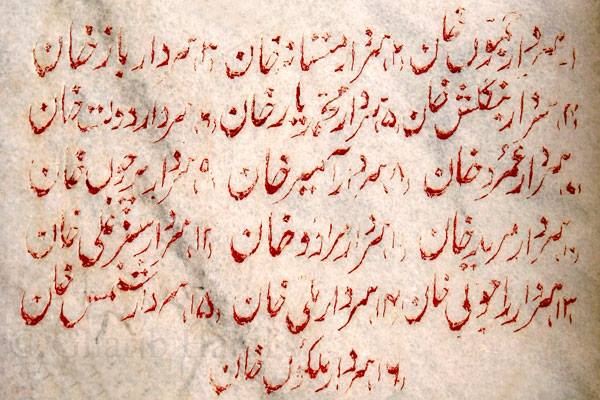 ۱، سردار خان ۲، سردار مستانہ خان ۳، سردار باز خان
۴، سردار بنگلش خان ۵، سردار محمد یار خان ۶، سردار دولت خان
۷، سردار خان ۸، سردار خان ۹، سردار خان
۱۰، سردار مرید خان ۱۱، سردار خان ۱۲، سردار علی خان
۱۳، سردار راجولی خان ۱۴، سردار بلی خان ۱۵، سردار شمس خان
۱۶، سردار ملکوں خان